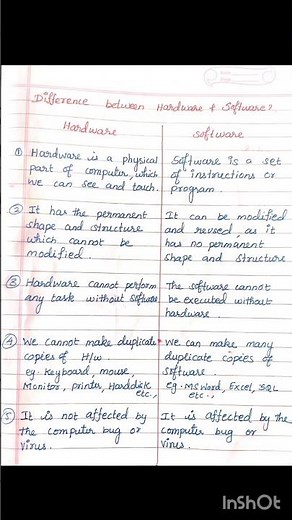 Difference between Hardware & Software?
Hardware
Software
① Hardware is a physical
part of computer, which
we can see and touch.
Software is a set
of instructions or
program.
② It has the permanent
shape and structure
which cannot be
modified.
It can be modified
and reused, as it
has no permanent
shape and structure
③ Hardware cannot perform
any task without software
The software cannot
be executed without
hardware.
④ We cannot make duplicate
copies of H/w.
eg. Keyboard, mouse,
Monitor, printer, Harddisk
etc.,
We can make many
duplicate copies of
software.
eg. MS Word, Excel, SQL
etc.,
⑤ It is not affected by
the computer bug or
virus.
It is affected by the
computer bug or
virus.
InShOt